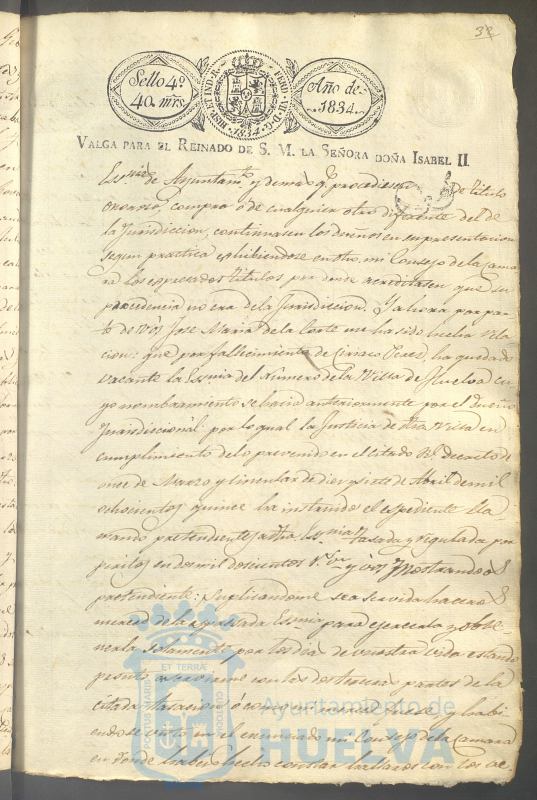 32
Sello 4º
40. mrs.
HISP. ET IND. R. FERD. VII. D. G. 1834
Año de
1834.
VALGA PARA EL REINADO DE S. M. LA SEÑORA DOÑA ISABEL II
Essnias de Ayuntamto y demas q. procediesen de titulo
oneroso, compra ó de cualquier otro diferente del de
la Jurisdiccion, continuasen los dueños en su presentacion
segun practica exhibiendose en dho. mi Consejo de la Cama
ra los espresados titulos por donde acreditasen que su
procedencia no era de la Jurisdiccion. Y ahora por par
te de Vos Jose Maria de la Corte me ha sido hecha rela
cion: que por fallecimiento de Perez, ha quedado
vacante la Essnia del Numero de la Villa de Huelva cu
yo nombramiento se hacia anteriormente por el dueño
Jurisdiccional: por lo qual la Justicia de dha Villa en
cumplimiento de lo prevenido en el citado Rl decreto de
once de Marzo y circular de diez y siete de Abril de mil
ochocientos quince ha instruido el espediente lla
mando pretendientes a dha Essnia tasada y regulada por
peritos en dos mil doscientos rs. vn. y Vos mostrandoos
pretendiente: Suplicandome sea servida haceros
merced de la espresada Essnia para ejercerla y obte
nerla solamente por los dias de vuestra vida estando
pronto a servirme con las dos terceras partes de la
citada tasacion ó como mi merced fuese y habi
endose visto en el enunciado mi Consejo de la Camara
en donde habeis hecho constar hallaros con los re
PORTUS MARIS ET TERRÆ CUSTODIA
Ayuntamiento de
HUELVA